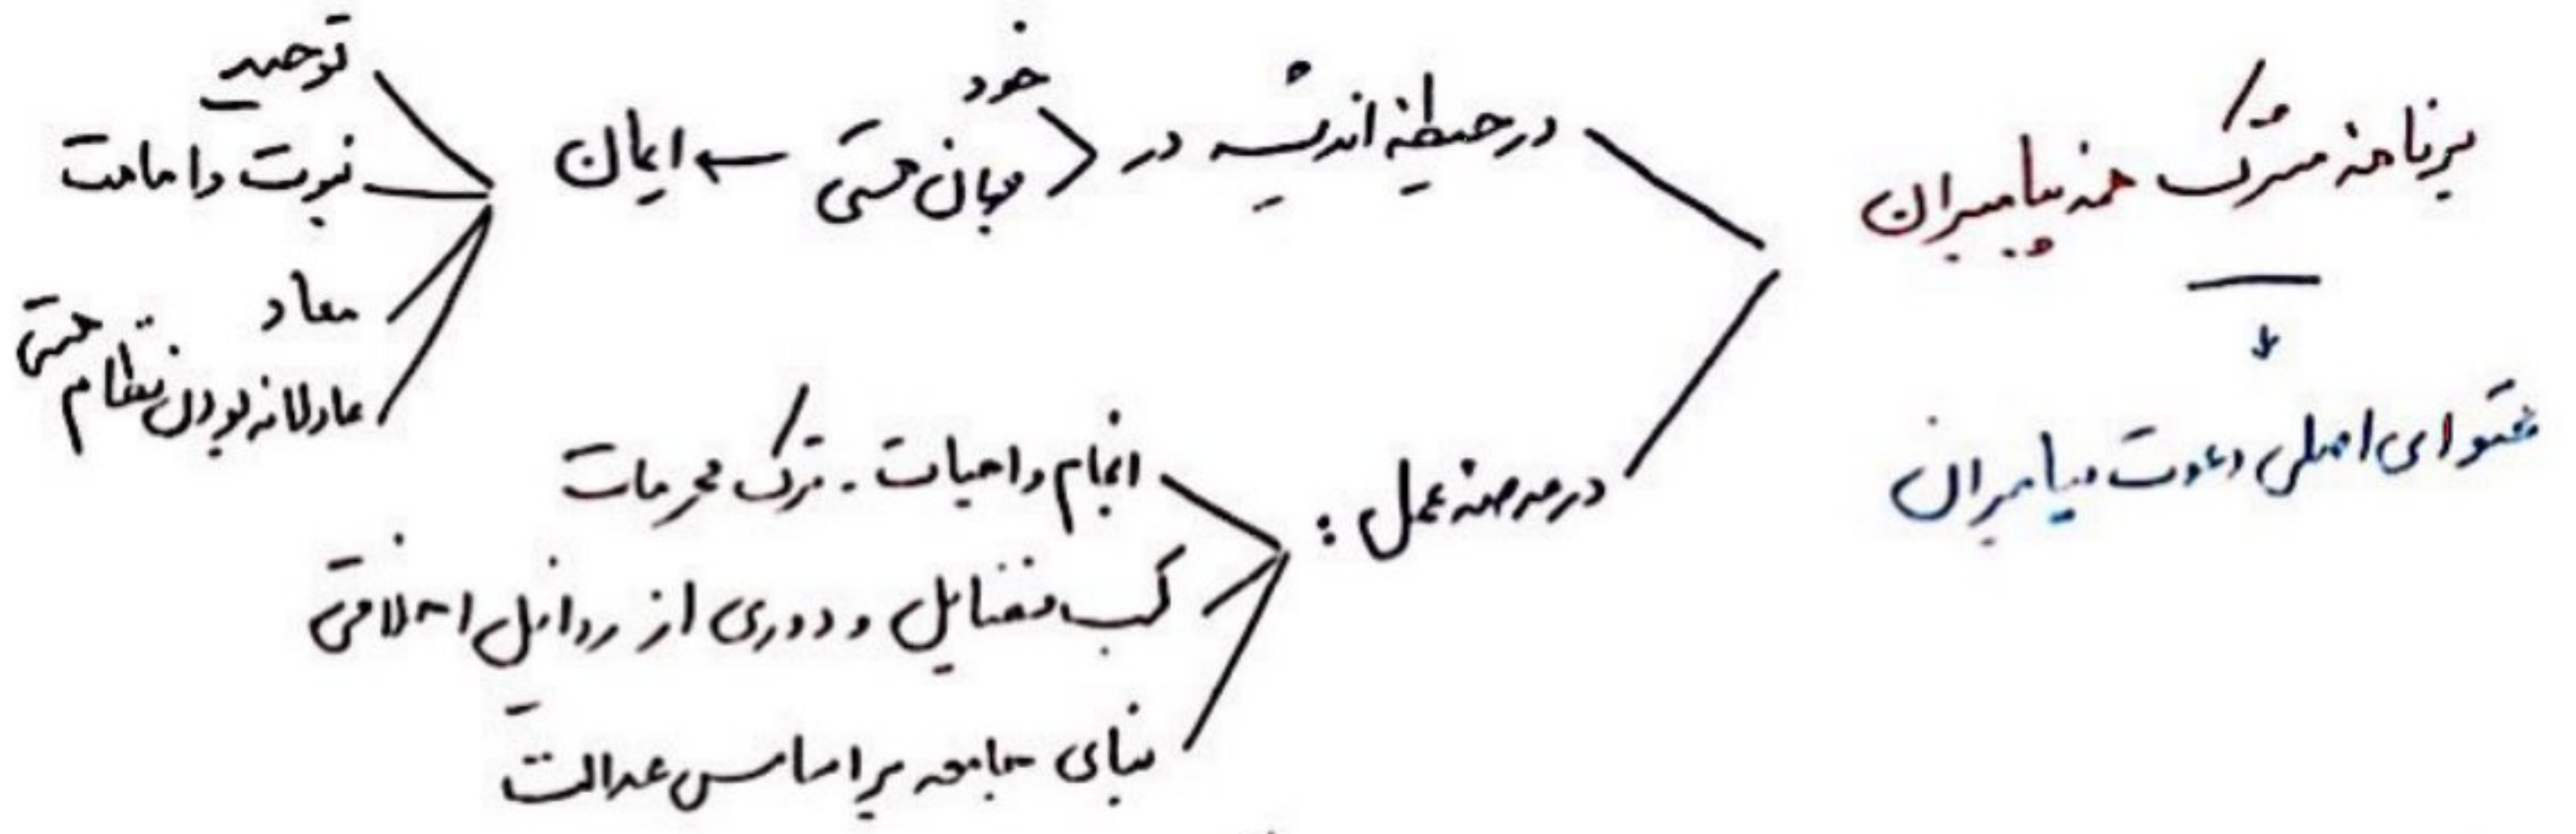 برنامهٔ مشترک همه پیامبران
محتوای اصلی دعوت پیامبران
در حیطهٔ اندیشه در
خود
جهان هستی ← ایمان
توحید
نبوت و امامت
معاد
عادلانه بودن نظام هستی
در عرصه عمل :
انجام واجبات - ترک محرمات
کسب فضایل و دوری از رذایل اخلاقی
بنای جامعه بر اساس عدالت